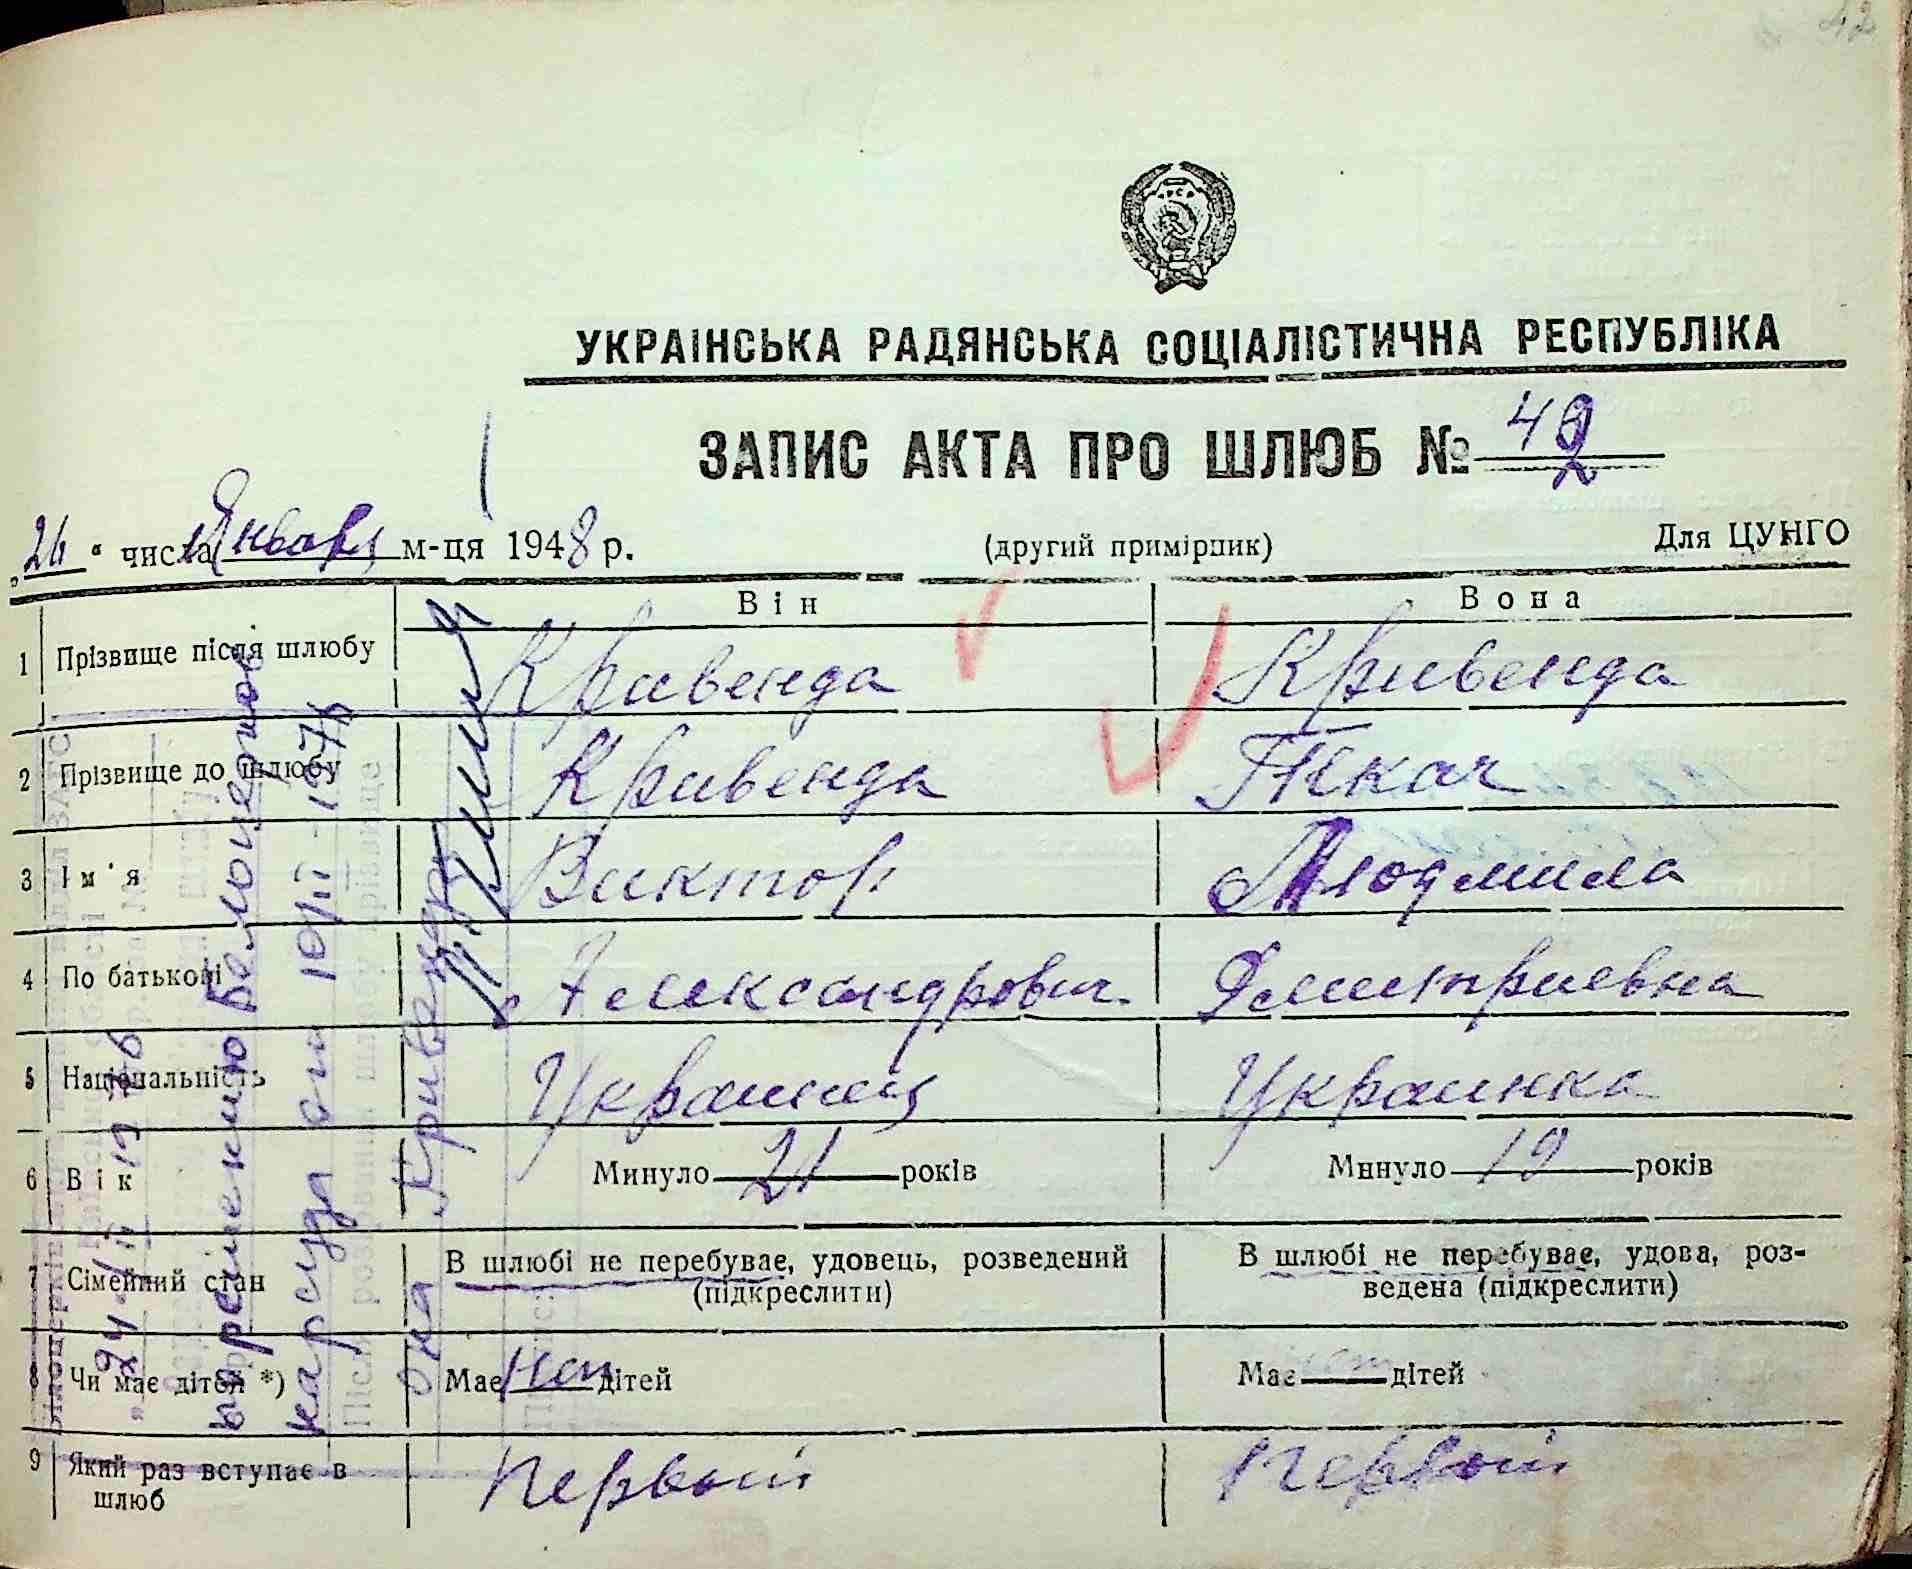 42
УКРАІНСЬКА РАДЯНСЬКА СОЦІАЛІСТИЧНА РЕСПУБЛІКА
ЗАПИС АКТА ПРО ШЛЮБ № 42
„26“ числа Января м-ця 1948 р. (другий примірник) Для ЦУНГО
Він Вона
1 Прізвище після шлюбу Кривенда Кривенда
2 Прізвище до шлюбу Кривенда Ткач
3 Ім'я Виктор Людмила
4 По батькові Александрович Дмитриевна
5 Національність Украинец Украинка
6 Вік Минуло 21 років Минуло 19 років
7 Сімейний стан В шлюбі не перебуває, удовець, розведений (підкреслити) В шлюбі не перебуває, удова, роз-
ведена (підкреслити)
8 Чи має дітей *) Має нет дітей Має нет дітей
9 Який раз вступає в
шлюб Первый Первый
решению Белоцерков
нарсуда от
она Кривенда